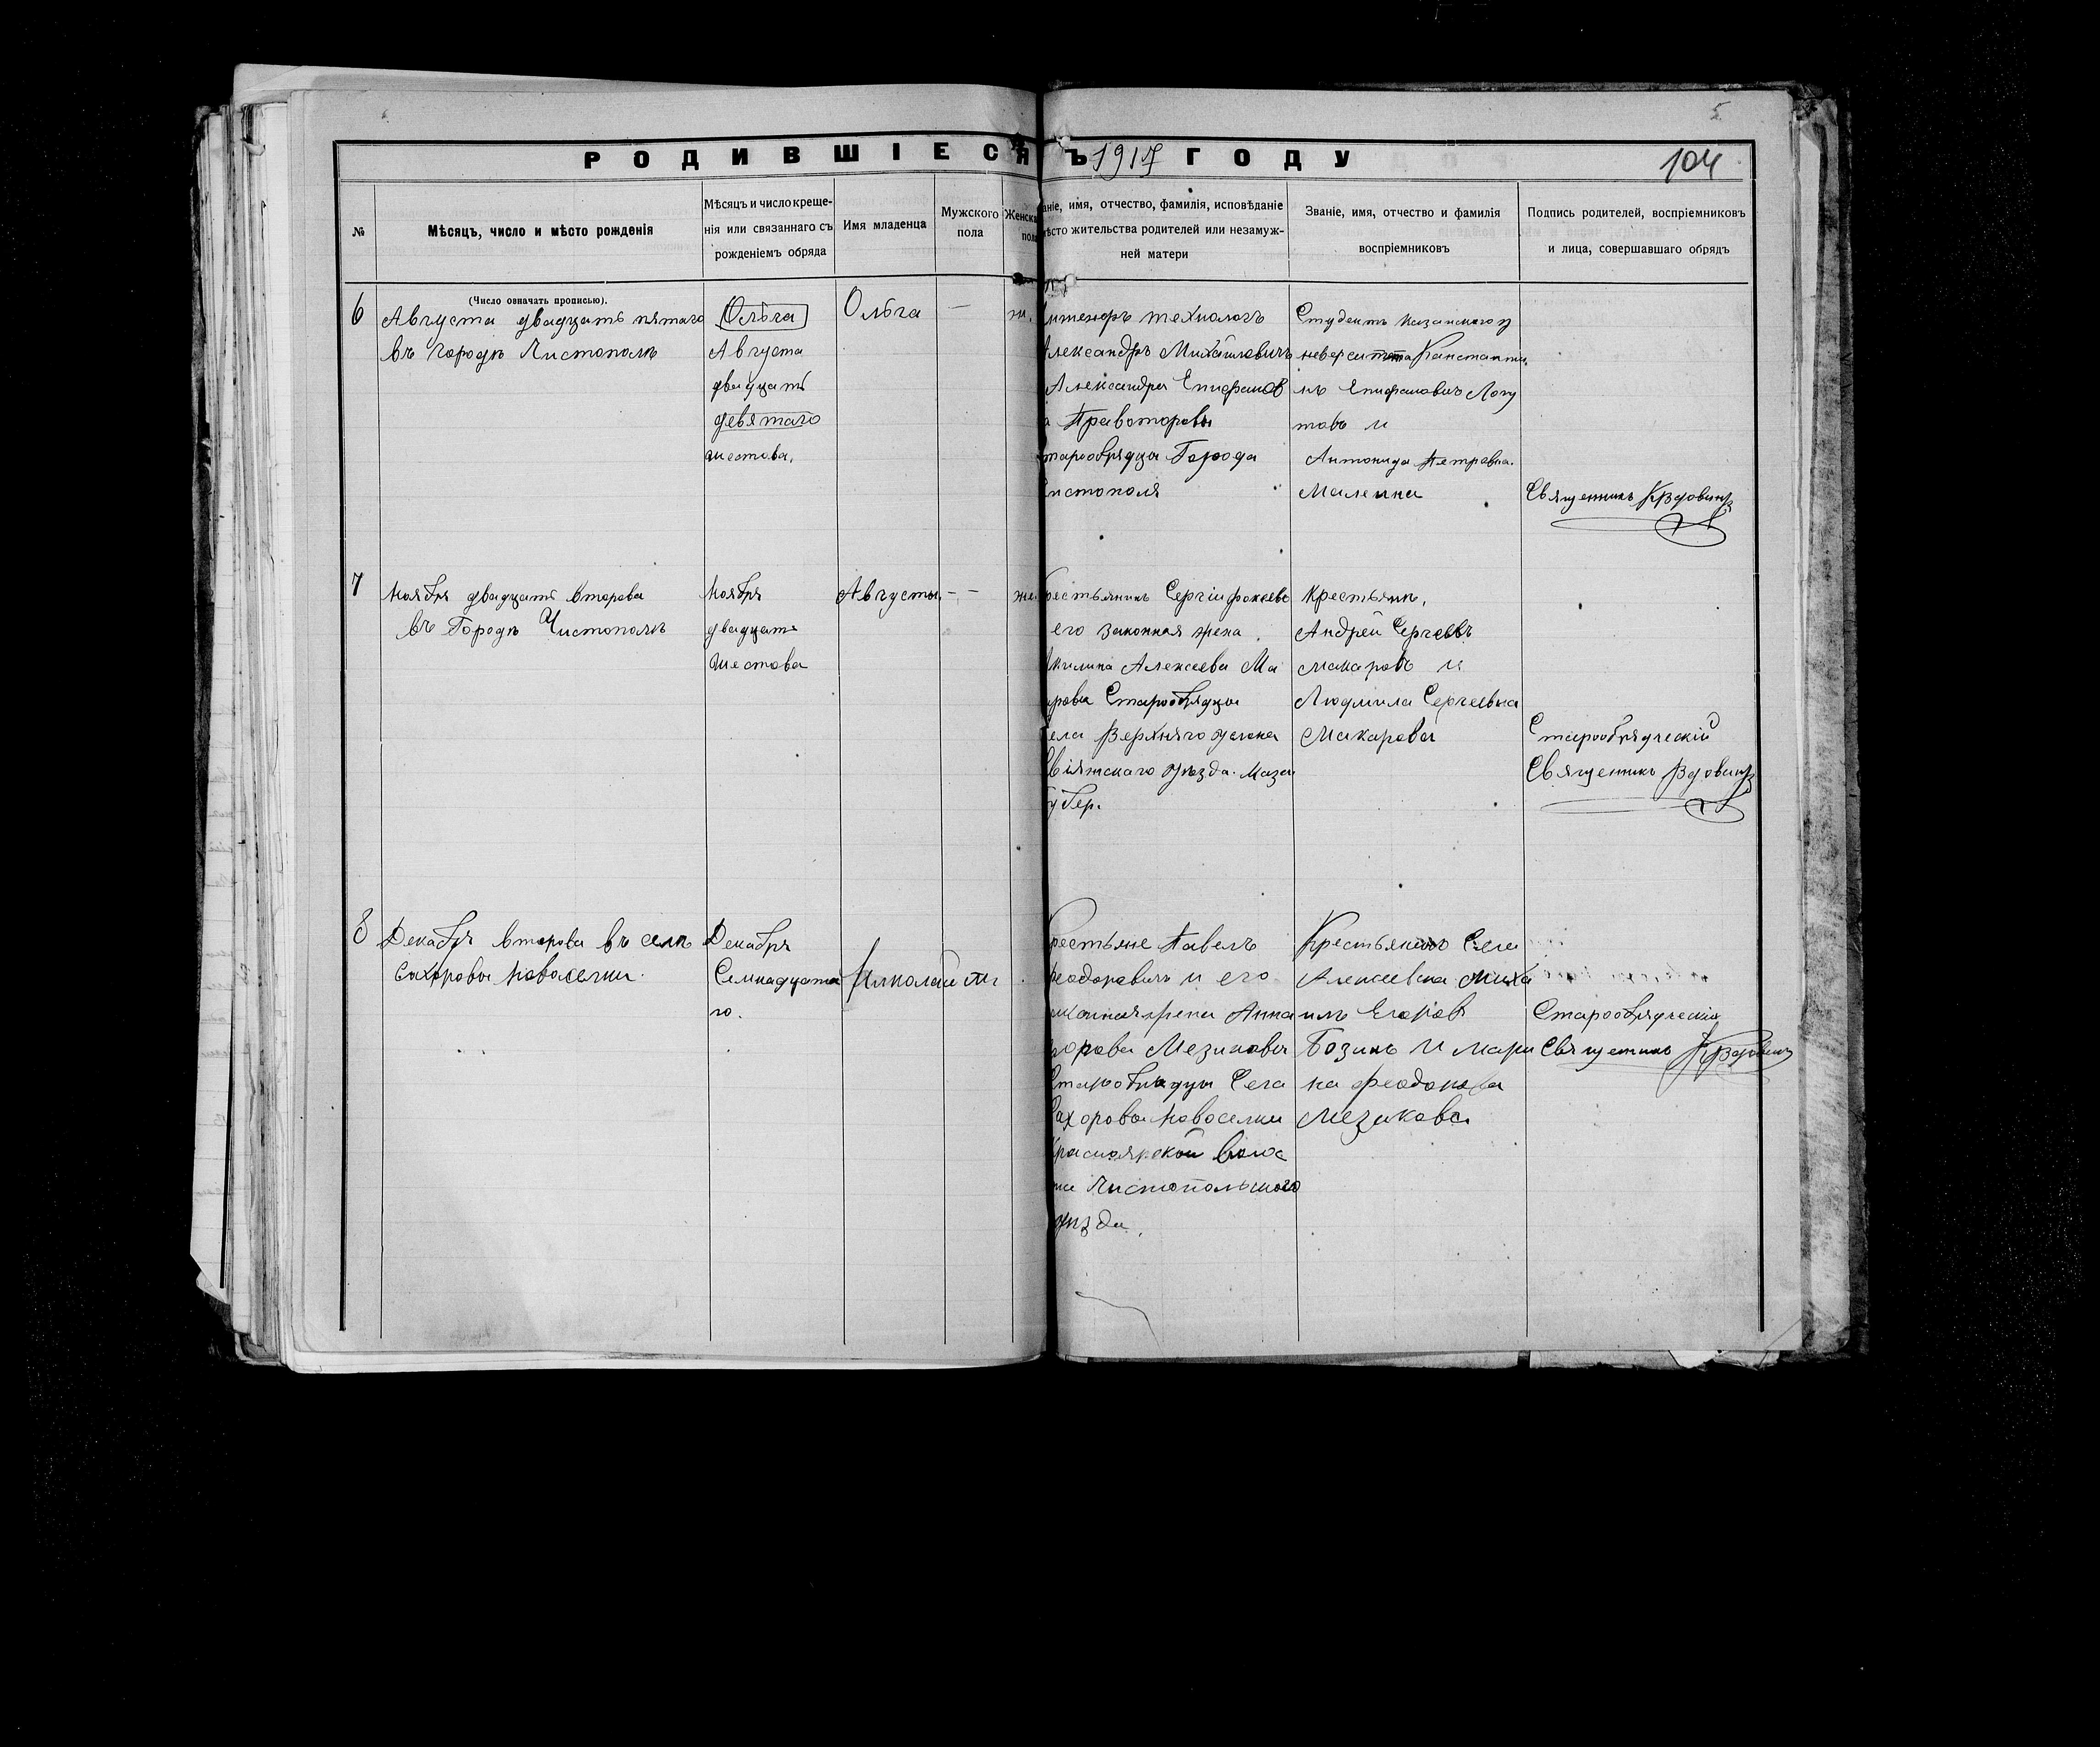 5
РОДИВШІЕСЯ
Ъ 1917 ГОДУ
104
№
Мѣсяцъ, число и мѣсто рожденія
Мѣсяцъ и число креще-
нія или связаннаго съ
рожденіемъ обряда
Имя младенца
Мужского
пола
Женска
пола
аніе, имя, отчество, фамилія, исповѣданіе
ѣсто жительства родителей или незамуж-
ней матери
Званіе, имя, отчество и фамилія
воспріемниковъ
Подпись родителей, воспріемниковъ
и лица, совершавшаго обрядъ
(Число означать прописью).
6
Августа двадцать пятаго
въ городѣ Чистополѣ
Ольга
Августа
двадцать
девятаго
шестова.
Ольга
—
ж.
нженеръ технологъ
Александръ Михайловичъ
Александра Епифанов
а Правоторовы
тарообрядцы Города
истополя
Студентъ Казанского у
неверситета Константи
нъ Епифановичъ Логу
товъ и
Антонида Петровна
Малеина
Священникъ К Вдовинъ
7
Ноября двадцать второва
въ Городѣ Чистополѣ
Ноября
двадцать
шестова
Августы
— —
же
рестьянинъ Сергій Фокеевъ
его законная жена
килина Алексеева Ма
рова Старообрядцы
ела Верхняго Услона
віяжскаго уѣзда. Каза
губер.
Крестьянъ,
Андрей Сергеевъ
Макаровъ и
Людмила Сергеевна
Макарова
Старообрядческій
Священникъ Вдовинъ
8
Декабря второва въ селѣ
Сахоровы Новоселки.
Декабря
Семнадцата
го.
Николай
м
рестьяне Павелъ
Феодоровичъ и его
конная жена Анна
Мезикова
Старообрядцы Села
Сахоровы Новоселки
Красноярской волос
ти Чистопольскаго
уѣзда.
Крестьяне Села
Алексеевска Миха
илъ Егоров
Бозинъ и Мари
на Феодорова
Мезикова
Старообрядческій
Священникъ К Вдовинъ